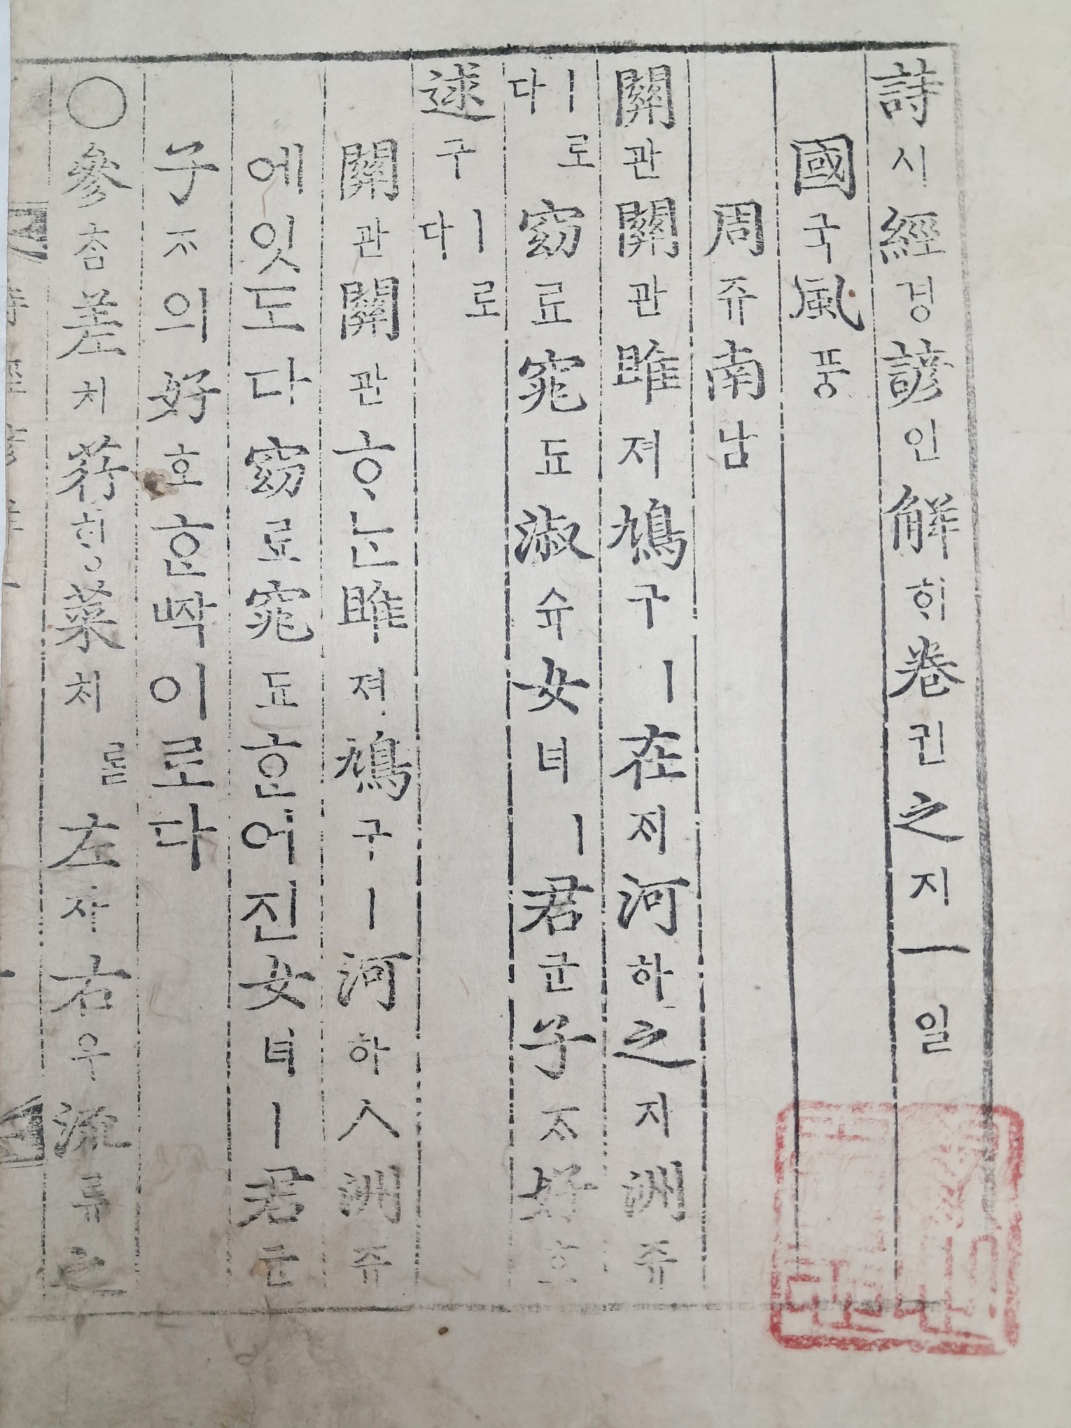 詩시經경諺언解ᄒᆡ卷권之지一일
國국風풍
周쥬南남
關관關관雎져鳩구ㅣ在ᄌᆡ河하之지洲쥬
ㅣ로다窈료窕됴淑슉女녀ㅣ君군子ᄌᆞ好호
逑구ㅣ로다
關관關관ᄒᆞᄂᆞᆫ雎져鳩구ㅣ河하ㅅ洲쥬
에잇도다窈료窕됴ᄒᆞᆫ어진女녀ㅣ君군
子ᄌᆞ의好호ᄒᆞᆫᄧᅡᆨ이로다
○參참差치荇ᄒᆡᆼ菜ᄎᆡ를左자右우流류之